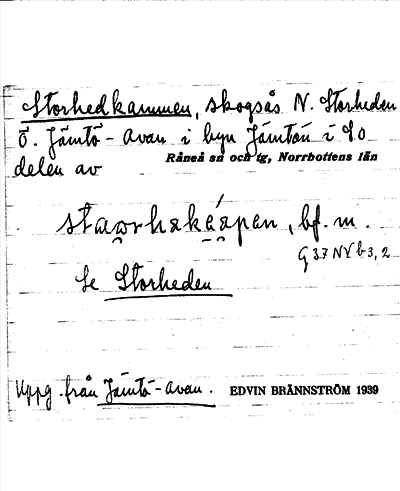 Storhedkammen, skogsås N. Storheden
Ö. Jämtö-avan i byn Jämtön i SO
delen av Råneå sn och tg, Norrbottens län
bf. m.
G 37 NV b 3, 2
Se Storheden
Uppg. från Jämtö-avan. EDVIN BRÄNNSTRÖM 1939